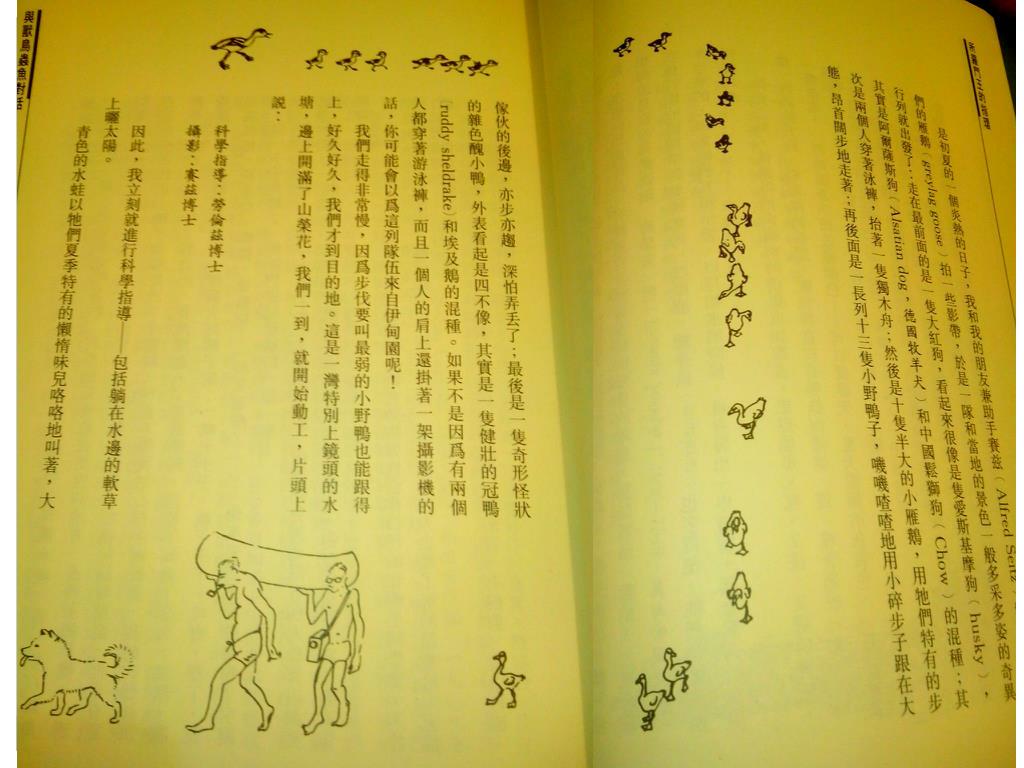 所羅門王的指環
是初夏的一個炎熱的日子，我和我的朋友兼助手賽茲（Alfred Seitz）
們的雁鵝（greylag goose）拍一些影帶，於是一隊和當地的景色一般多采多姿的奇異
行列就出發了：走在最前面的是一隻大紅狗，看起來很像是隻愛斯基摩狗（husky），
其實是阿爾薩斯狗（Alsatian dog，德國牧羊犬）和中國鬆獅狗（Chow）的混種；其
次是兩個人穿著泳褲，抬著一隻獨木舟；然後是十隻半大的小雁鵝，用牠們特有的步
態，昂首闊步地走著；再後面是一長列十三隻小野鴨子，嘰嘰喳喳地用小碎步子跟在大
傢伙的後邊，亦步亦趨，深怕弄丟了；最後是一隻奇形怪狀
的雜色醜小鴨，外表看起是四不像，其實是一隻健壯的冠鴨
（ruddy sheldrake）和埃及鵝的混種。如果不是因爲有兩個
人都穿著游泳褲，而且一個人的肩上還掛著一架攝影機的
話，你可能會以爲這列隊伍來自伊甸園呢！
我們走得非常慢，因爲步伐要叫最弱的小野鴨也能跟得
上，好久好久，我們才到目的地。這是一灣特別上鏡頭的水
塘，邊上開滿了山榮花，我們一到，就開始動工，片頭上
説：
科學指導：勞倫茲博士
攝影：賽茲博士
因此，我立刻就進行科學指導——包括躺在水邊的軟草
上曬太陽。
青色的水蛙以牠們夏季特有的懶惰味兒咯咯地叫著，大
與獸鳥蟲魚對話